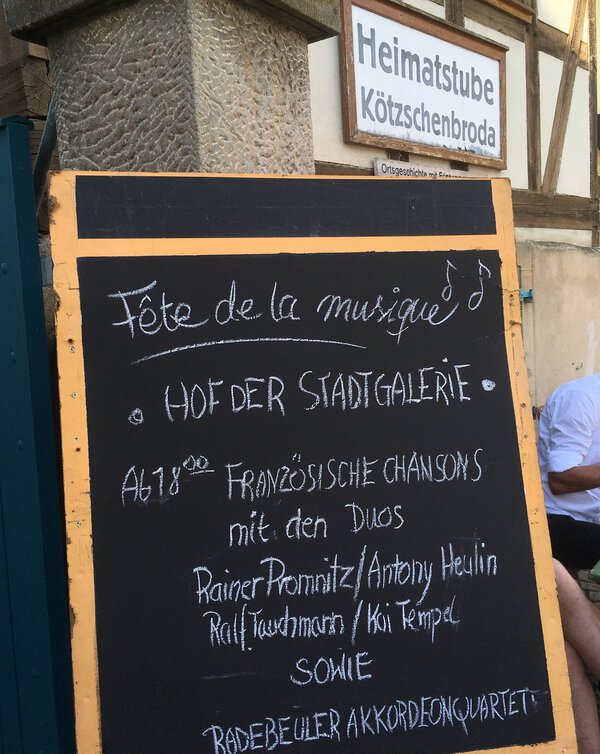 Heimatstube
Kötzschenbroda
Ortsgeschichte mit
Fête de la musique
HOF DER STADTGALERIE
AB 18⁰⁰ FRANZÖSISCHE CHANSONS
mit den Duos
Rainer Promnitz/Antony Heulin
Ralf Tauchmann/Kai Tempel
SOWIE
RADEBEULER AKKORDEONQUARTETT